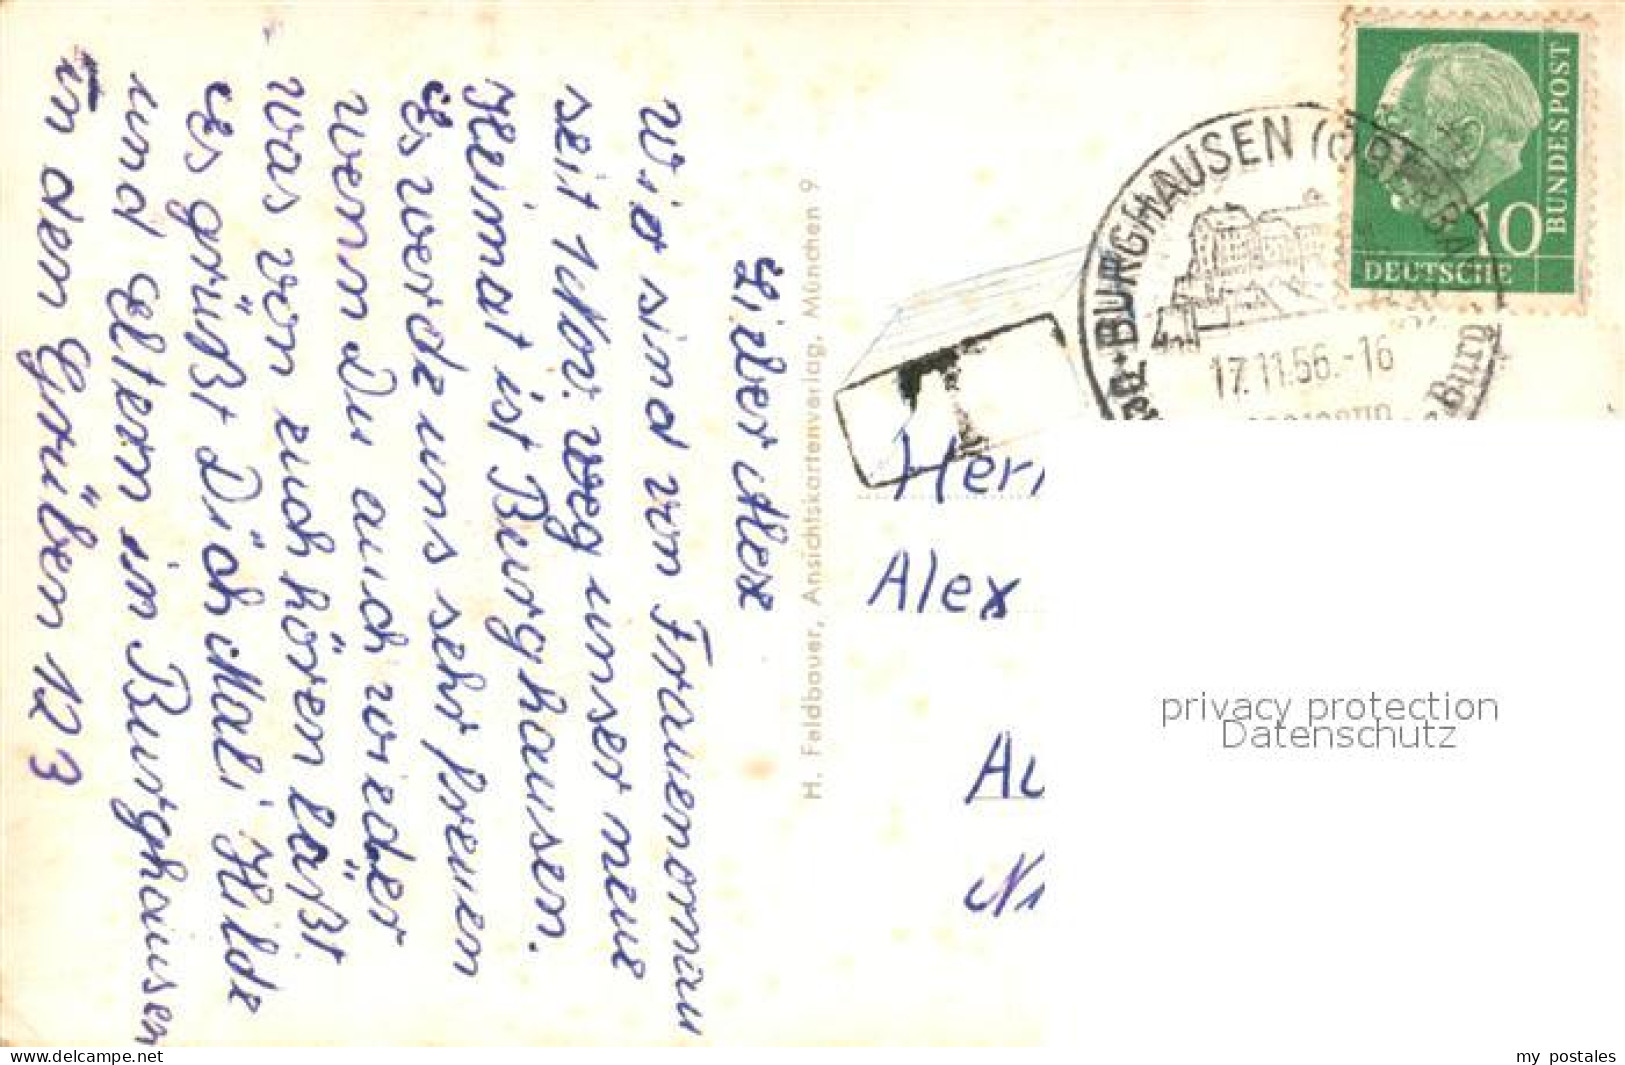 Lieber Alex
Wir sind von Frauenornau
seit 1 Nov. weg unser neue
Heimat ist Burghausen.
Es werde uns sehr freuen
wenn Du auch wieder
was von euch hören läßt
es grüßt Dich Mali Hilde
und Eltern in Burghausen
in den Grüben 123
H. Feldbauer, Ansichtskartenverlag, München 9
BURGHAUSEN
17.11.56.-16
Burg
BUNDESPOST
10
DEUTSCHE
Herr
Alex
privacy protection
Datenschutz
www.delcampe.net
my_postales